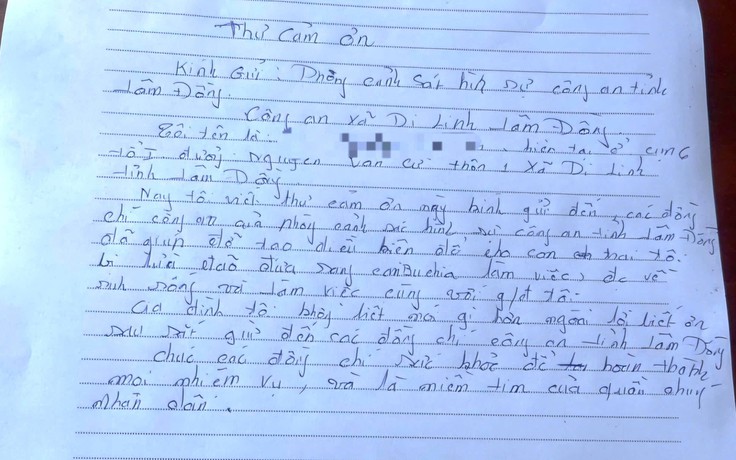 Thư Cảm ơn
Kính Gửi: Phòng cảnh sát hình sự công an tỉnh
Lâm Đồng.
Công an xã Di Linh Lâm Đồng.
Tôi tên là: hiện tại ở cụm 6
tổ I đường Nguyen Van cừ thôn 1 xã Di Linh
tỉnh Lâm Đồng
Nay tôi viết thư cảm ơn này bình gửi đến, các đồng
chí công an của phòng cảnh sát hình sự công an tỉnh Lâm Đồng
đã giúp đỡ tạo điều kiện để cho con trai tôi.
bị lừa đảo đưa sang làm việc, đc về
sinh sống và làm việc cùng với g/đ tôi.
Gia đình tôi không biết nói gì hơn ngoài lời biết ơn
sâu sắc gửi đến các đồng chí công an tỉnh Lâm Đồng
chúc các đồng chí sức khoẻ để hoàn thành
mọi nhiệm vụ, và là niềm tim của quần chung
nhân dân.